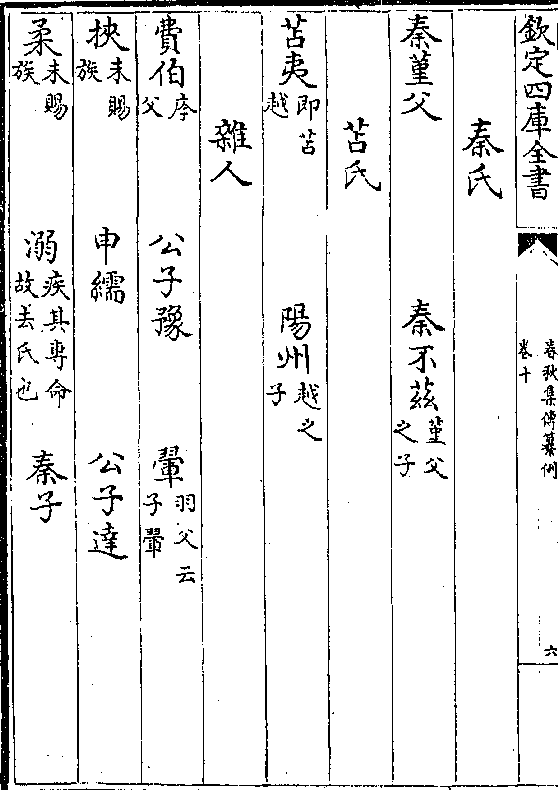 欽定四庫全書
春秋集傳纂例
卷十
六
秦氏
秦堇父 秦不茲堇父之子
苫氏
苫夷即苫越 陽州越之子
雜人
費伯庈父 公子豫 翬羽父云子翬
挾未賜族 申繻 公子達
柔未賜族 溺疾其專命故去氏也 秦子